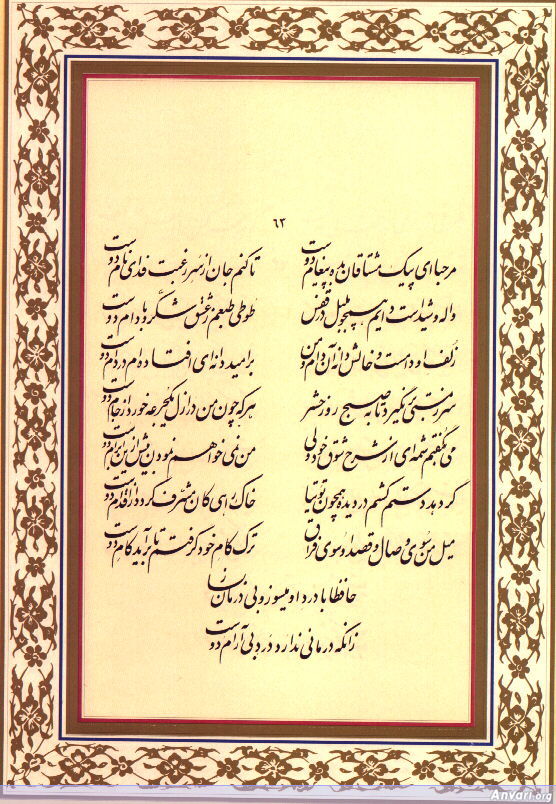 ۶۳
مرحبا ای پیک مشتاقان بده پیغام دوست تا کنم جان از سر رغبت فدای نام دوست
واله و شیداست دایم همچو بلبل در قفس طوطی طبعم ز عشق شکر و بادام دوست
زلف او دامست و خالش دانه آن دام و من بر امید دانه‌ای افتاده‌ام در دام دوست
سر ز مستی بر نگیرد تا به صبح روز حشر هر که چون من در ازل یک جرعه خورد از جام دوست
می نگفتم شمه‌ای از شرح شوق خود ولی من نمی خواهم نمودن بیش از این ابرام دوست
گر دهد دستم کشم در دیده همچون توتیا خاک راهی کان مشرف گردد از اقدام دوست
میل من سوی وصال و قصد او سوی فراق ترک کام خود گرفتم تا برآید کام دوست
حافظا با درد او میسوز و بی درمان بساز
زانکه درمانی ندارد درد بی آرام دوست
Anvari.org